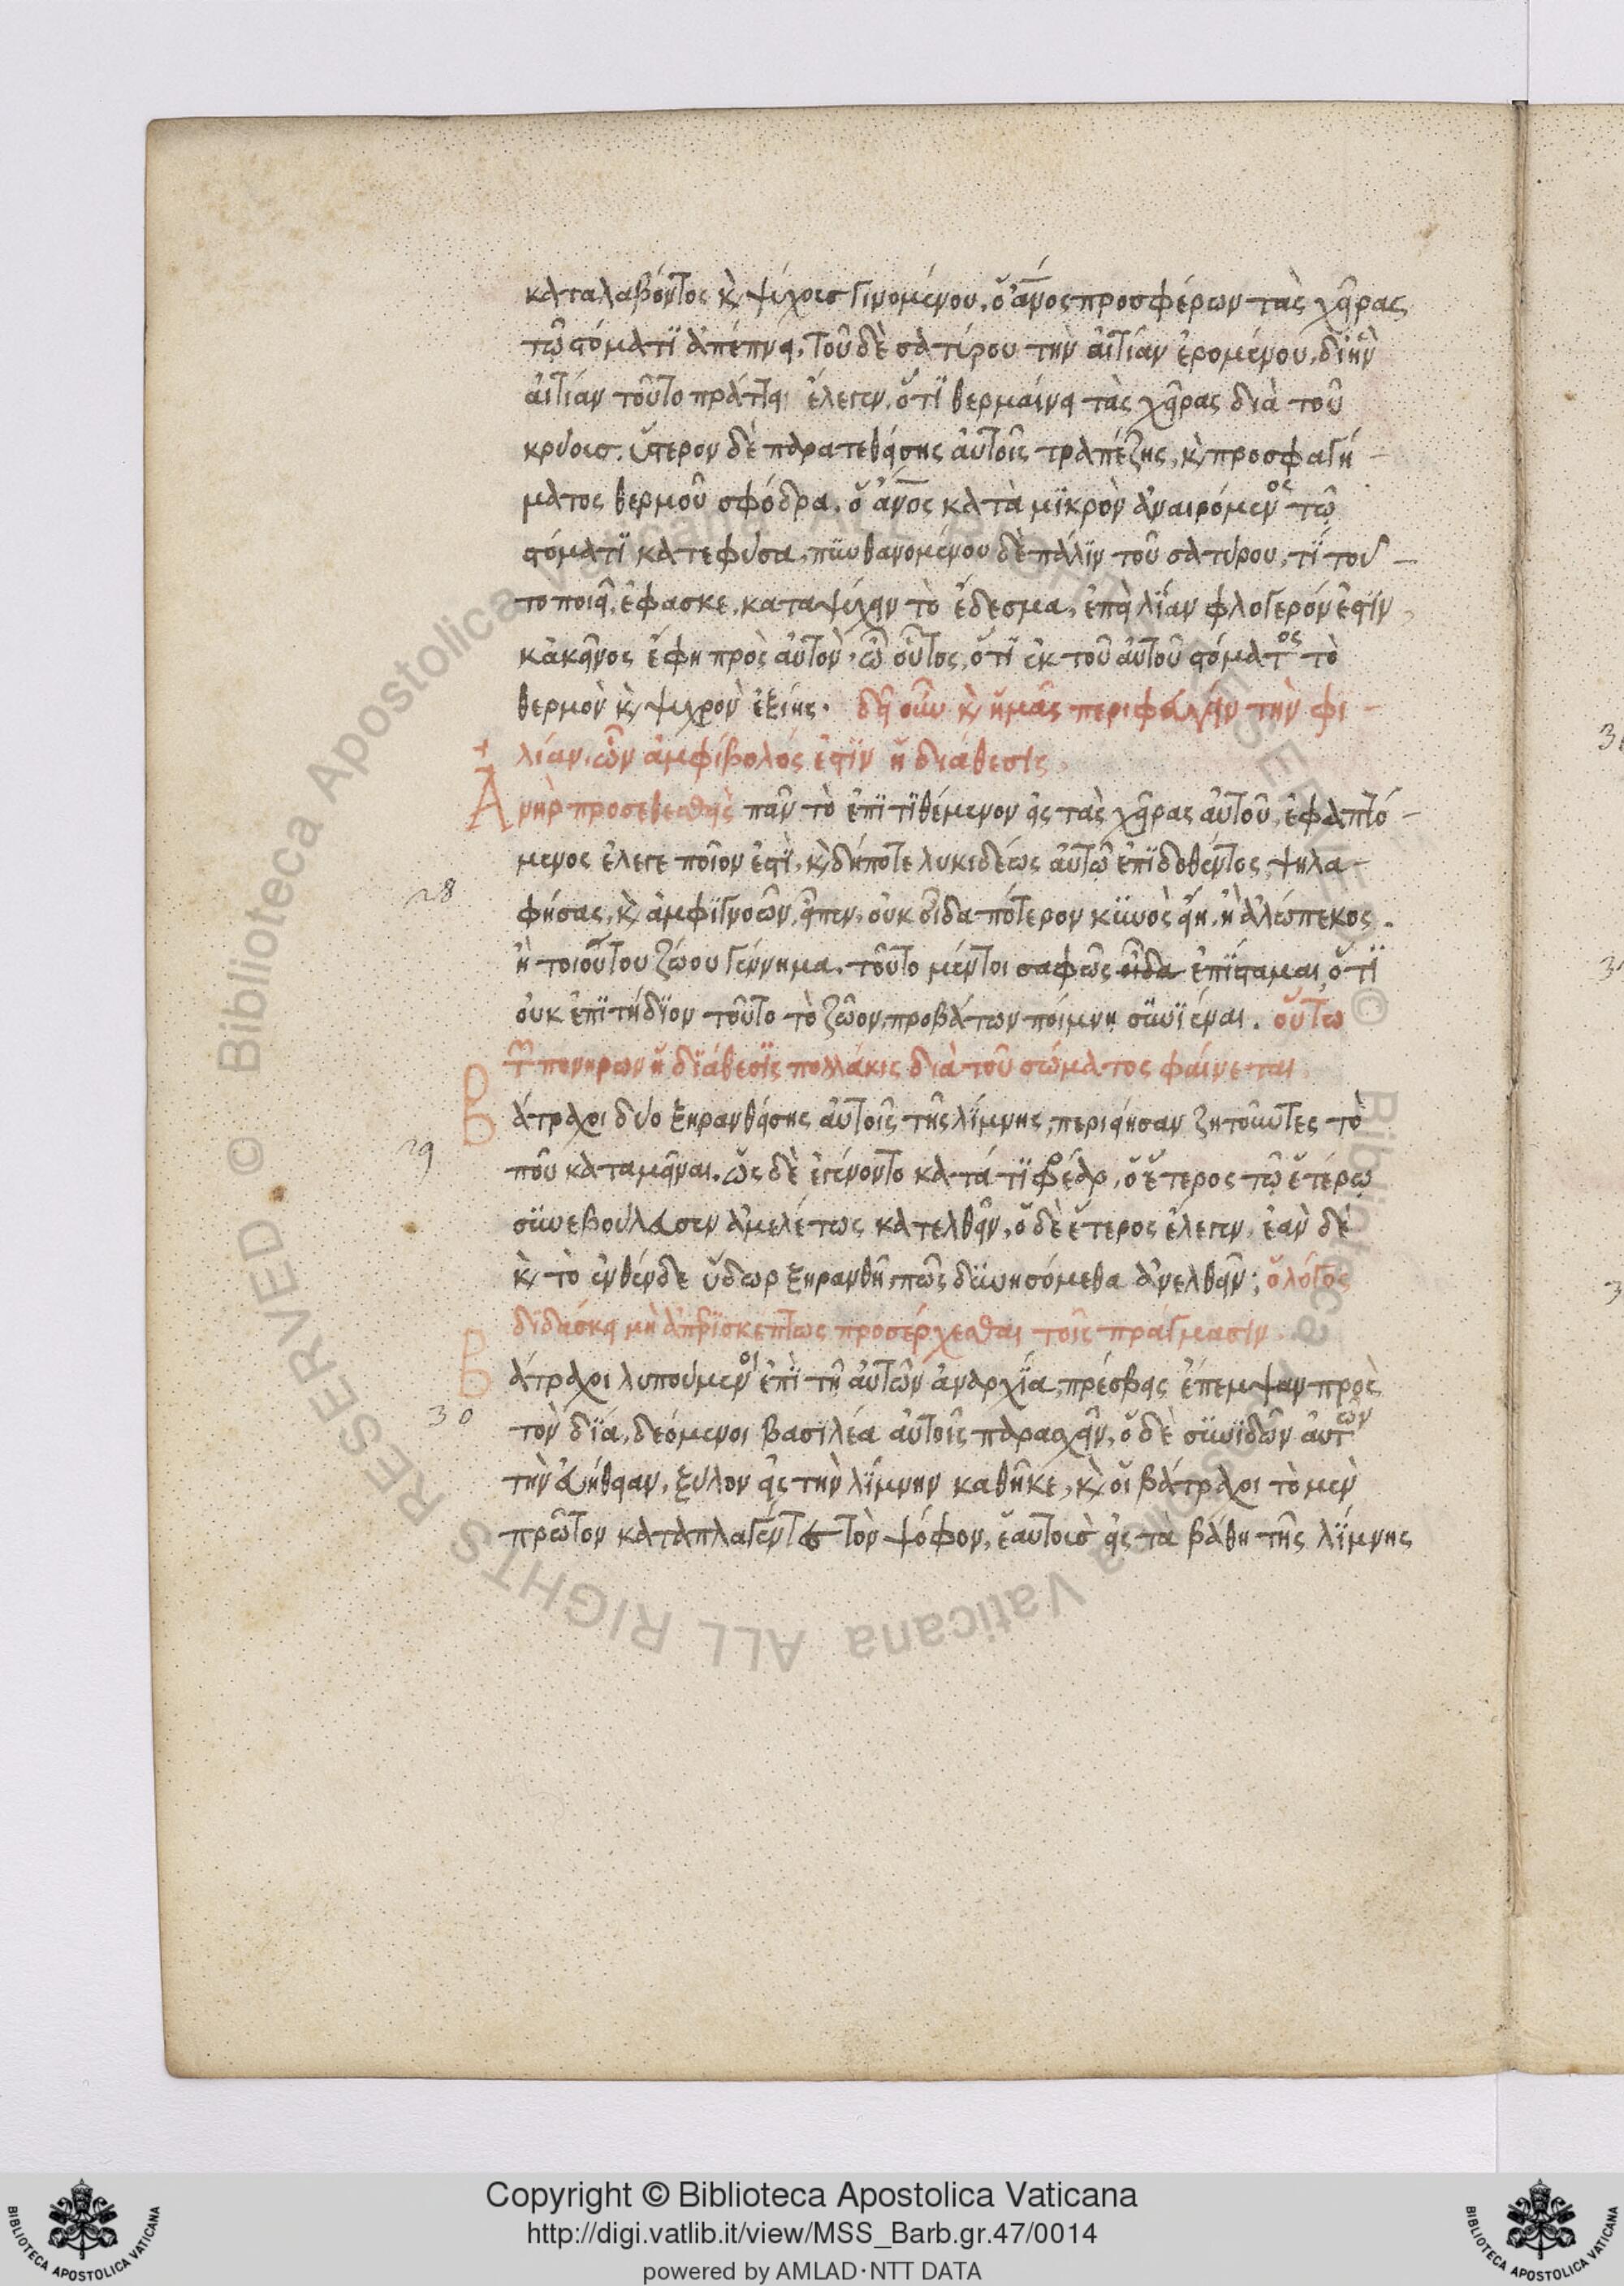 καταλαβόντος κ̀ ψύχους γινομένου, ὁ ἄνος προσφέρων τὰς χεῖρας
τῷ στόματϊ ἀπέπνει. τοῦ δὲ σατύρου τὴν αἰτίαν ἐρομένου, δι ἣν
αἰτίαν τοῦτο πράττει ἔλεγεν, ὅτϊ θερμαίνει τὰς χεῖρας διὰ τοῦ
κρύους. ὕστερον δὲ παρατεθείσης αὐτοῖς τραπέζης, κ̀ προσφαγή-
ματος θερμοῦ σφόδρα, ὁ ἄνος κατὰ μϊκρὸν ἀναιρόμενος τῷ
στόματϊ κατεφύσα, πϋνθανομένου δὲ πάλϊν τοῦ σατύρου, τϊ τοῦ-
το ποιεῖ, ἔφασκε, καταψύχειν τὸ ἔδεσμα, ἐπεὶ λϊαν φλογερόν ἐστϊν,
κἀκεῖνος ἔφη πρὸς αὐτὸν, ὦ οὗτος, ὅτϊ ἐκ τοῦ αὐτοῦ στόματος τὸ
θερμὸν κ̀ ψυχρὸν ἐξίης. δεῖ οὖν κ̀ ἡμᾶς περιφεύγειν τὴν φι-
λίαν ὧν ἀμφίβολός ἐστϊν ἡ διάθεσις.
Ἀνὴρ προσεθεσθεὶς πᾶν τὸ ἐπϊτϊθέμενον εἰς τὰς χεῖρας αὐτοῦ, ἐφαπτό-
μενος ἔλεγε ποῖον ἐστϊ, κ̀ δήποτε λυκιδέως αὐτῷ ἐπϊδοθέντος, ψηλα-
28
φήσας, κ̀ ἀμφϊγνοῶν, εἶπεν, οὐκ οἶδα πότερον κϋνὸς εἴη, ἢ ἀλώπεκος.
ἢ τοιούτου ζώου γέννημα. τοῦτο μέντοι σαφῶς οἶδα ἐπϊσταμαι, ὅτϊ
οὐκ ἐπϊτήδϊον τοῦτο τὸ ζῶον, προβάτων ποίμνῃ σϋνϊέναι. οὕτω
τῶν πονηρων ἡ δϊάθεσϊς πολλάκις διὰ τοῦ σώματος φαίνεται
Βάτραχοι δύο ξηρανθείσης αὐτοῖς τῆς λϊμνης, περιῄησαν ζητοῦντες τὸ
29
ποῦ καταμεῖναι. ὡς δὲ ἐγένοντο κατά τϊ φρέαρ, ὁ ἕτερος τῷ ἑτέρῳ
σϋνεβούλευσεν ἀμελέτως κατελθεῖν, ὁ δὲ ἕτερος ἔλεγεν, ἐὰν δὲ
κ̀ τὸ ἐνθένδε ὕδωρ ξηρανθῇ, πῶς δϋνησόμεθα ἀνελθεῖν; ὁ λόγος
δϊδάσκει μὴ ἀπερϊσκέπτως προσέρχεσθαι τοῖς πράγμασϊν.
Βάτραχοι λυπούμενοι ἐπϊ τῇ αὐτῶν ἀναρχϊα, πρέσβεις ἔπεμψαν πρὸς
30
τὸν δϊα, δεόμενοι βασϊλέα αὐτοῖς παρασχεῖν, ὁ δὲ σϋνϊδὼν αὐτῶν
τὴν εὐήθειαν, ξύλον εἰς τὴν λϊμνην καθῆκε, κ̀ οἱ βάτραχοι τὸ μὲν
πρῶτον καταπλαγέντες τὸν ψόφον, ἑαυτοὺσ εἰς τὰ βάθη τῆς λϊμνης
Copyright © Biblioteca Apostolica Vaticana
http://digi.vatlib.it/view/MSS_Barb.gr.47/0014
powered by AMLAD·NTT DATA